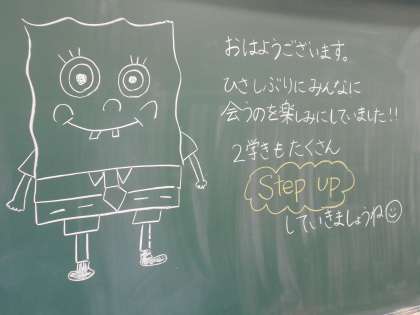 おはようございます。
ひさしぶりにみんなに
会うのを楽しみにしていました!!
2学きもたくさん
Step up
していきましょうね